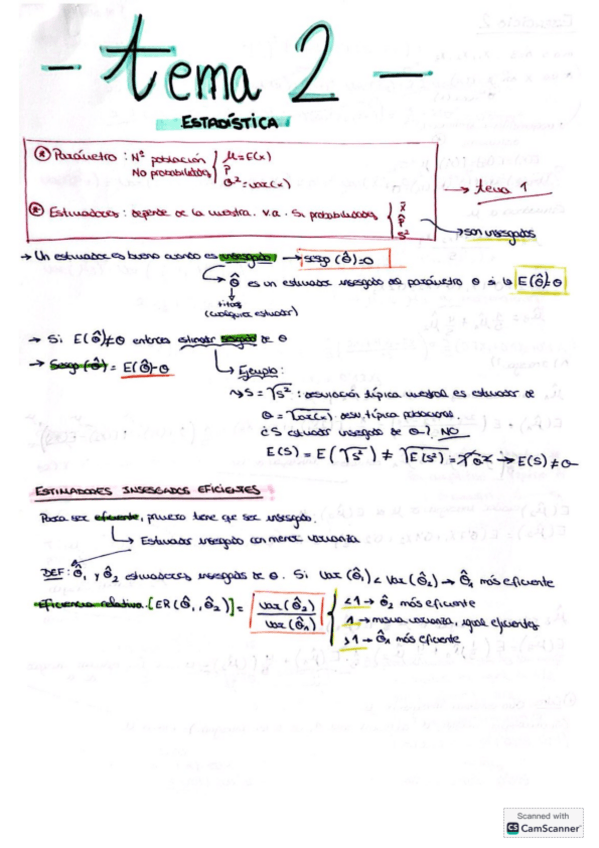 - tema 2 -
ESTADÍSTICA
* Parámetro : Nº población { μ = E(x)
No probabilidades { P
σ² = var(x)
→ tema 1
* Estimadores : depende de la muestra. v.a. si probabilidades { x̄
p̂
S² → son insesgados
→ Un estimador es bueno cuando es insesgado → sesgo (θ̂)=0
θ̂ es un estimador insesgado del parámetro θ si E(θ̂)=θ
(cualquier estimador)
→ Si E(θ̂)≠θ entonces estimador sesgado de θ
→ Sesgo (θ̂) = E(θ̂)-θ
Ejemplo:
S = √S² : desviación típica muestral es estimador de
σ = √var(x) desv. típica poblacional.
¿S estimador insesgado de σ? NO
E(S) = E(√S²) ≠ √E(S²) = → E(S) ≠ σ
ESTIMADORES INSESGADOS EFICIENTES
Para ser eficiente, primero tiene que ser insesgado.
→ Estimador insesgado con menor varianza
DEF: θ̂₁ y θ̂₂ estimadores insesgados de θ. Si Var(θ̂₁) < Var(θ̂₂) → θ̂₁ más eficiente
eficiencia relativa [ER(θ̂₁, θ̂₂)] = var(θ̂₂) / var(θ̂₁) { <1 → θ̂₂ más eficiente
1 → misma varianza, igual eficientes
>1 → θ̂₁ más eficiente
Scanned with
CS CamScanner